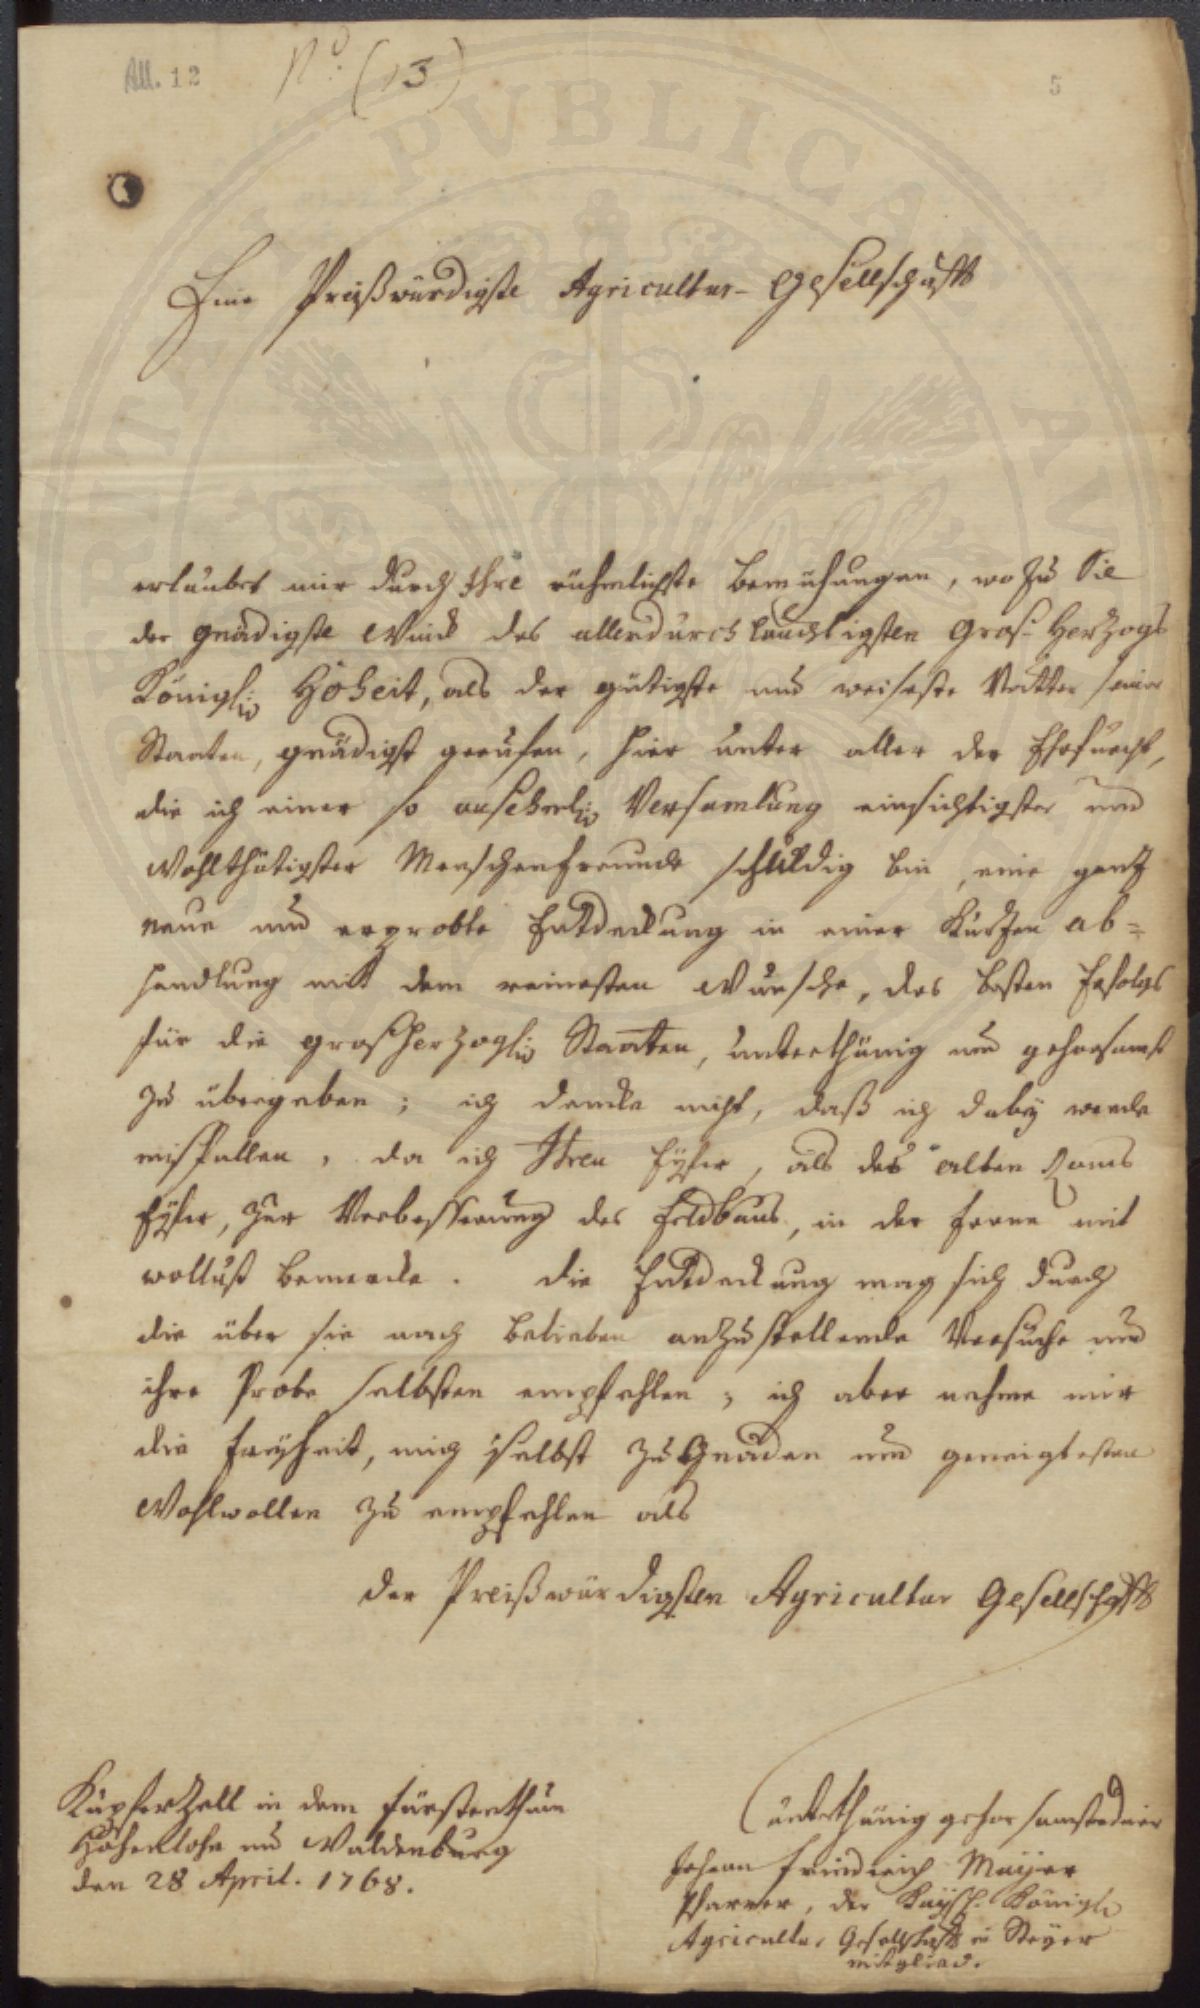 All. 12
No. (13)
5
Eine Preißwürdigste Agricultur-Gesellschafft
erlaubet mir durch Ihre rühmlichste bemühungen, wozu Sie
der gnädigste Winck des allerdurchlauchtigsten Gros-Herzogs
Königl. Hoheit, als der gütigste und weiseste Vatter seiner
Staaten, gnädigst gerufen, hier unter aller der Ehrfurcht,
die ich einer so ansehnl. Versamlung einsichtigster und
Wohlthätigster Menschenfreunde schuldig bin, eine gantz
neue und erprobte Entdeckung in einer Kurtzen ab=
handlung mit dem reinesten Wunsche, des besten Erfolgs
für die großherzogl. Staaten, unterthänig und gehorsamst
zu übergeben; ich dencke nicht, daß ich dabey werde
misfallen, da ich Ihren Eyfer, als des alten Roms
Eyfer, zur Verbesserung des Feldbaus, in der ferne mit
wollust bemercke. Die Entdeckung mag sich durch
die über sie nach belieben anzustellende Versuche und
ihre Probe selbsten empfehlen; ich aber nehme mir
die Freyheit, mich selbst zu Gnaden und geneigtesten
Wohlwollen zu empfehlen als
der Preißwürdigsten Agricultur Gesellschafft
Kupferzell in dem fürstenthum
Hohenlohe und Waldenburg
den 28 April. 1768.
unterthänig gehorsamster diener
Johann Friedrich Mayer
Pfarrer, der Kaysl. Königl.
Agricultur Gesellschafft in Steyer
mitglied.
PVBLICAE